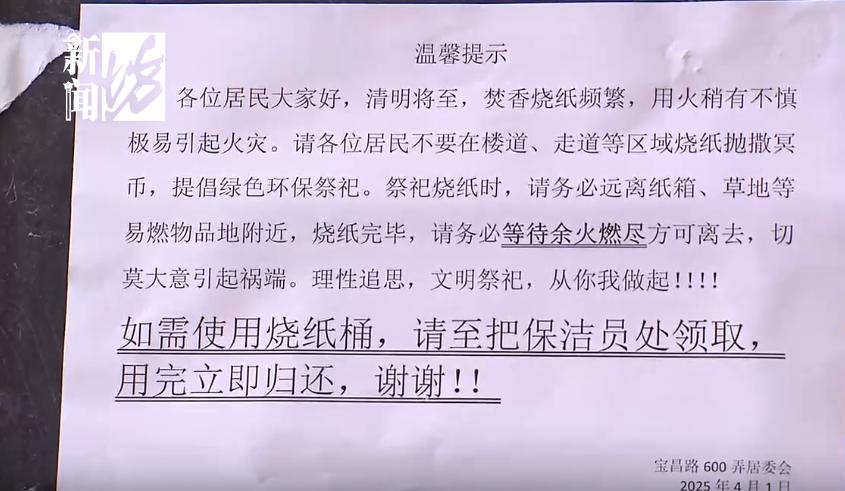 新闻坊
温馨提示
各位居民大家好，清明将至，焚香烧纸频繁，用火稍有不慎
极易引起火灾。请各位居民不要在楼道、走道等区域烧纸抛撒冥
币，提倡绿色环保祭祀。祭祀烧纸时，请务必远离纸箱、草地等
易燃物品地附近，烧纸完毕，请务必等待余火燃尽方可离去，切
莫大意引起祸端。理性追思，文明祭祀，从你我做起!!!!
如需使用烧纸桶，请至把保洁员处领取，
用完立即归还，谢谢!!
宝昌路 600 弄居委会
2025 年 4 月 1 日